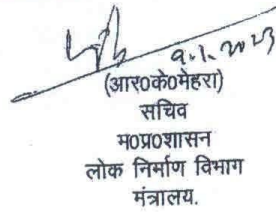 9.1.2023
(आर0के0मेहरा)
सचिव
म0प्र0शासन
लोक निर्माण विभाग
मंत्रालय.